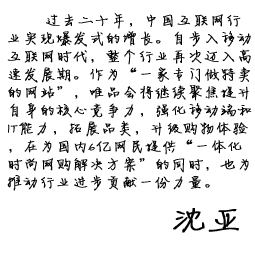 过去二十年，中国互联网行
业实现爆发式的增长。自步入移动
互联网时代，整个行业再次迈入高
速发展期。作为“一家专门做特卖
的网站”，唯品会将继续聚焦提升
自身的核心竞争力，强化移动端和
IT能力，拓展品类，升级购物体验
，在为国内6亿网民提供“一体化
时尚网购解决方案”的同时，也为
推动行业进步贡献一份力量。
沈亚